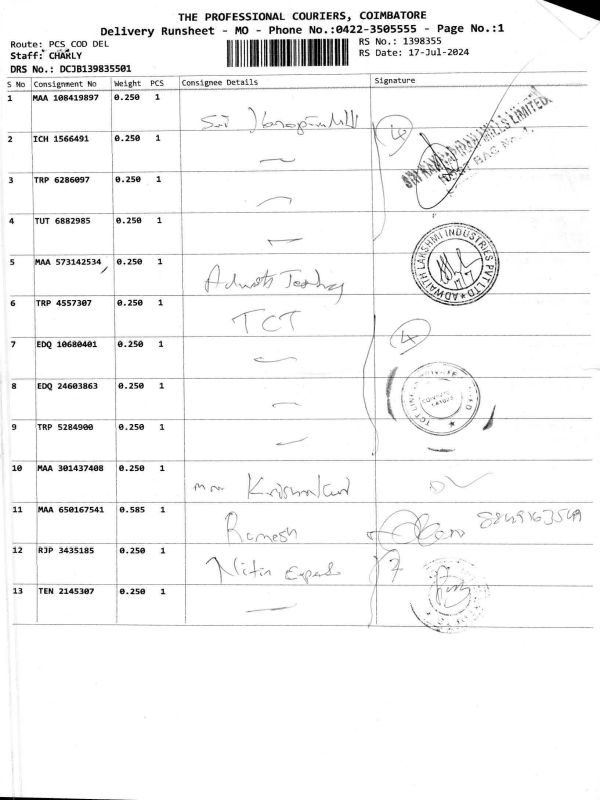 THE PROFESSIONAL COURIERS, COIMBATORE
Delivery Runsheet - MO - Phone No.:0422-3505555 - Page No.:1
Route: PCS COD DEL
RS No.: 1398355
Staff: CHARLY
RS Date: 17-Jul-2024
DRS No.: DCJB139835501
S No Consignment No Weight PCS Consignee Details Signature
1 MAA 108419897 0.250 1 Sri
4
MILLS LIMITED
BAG No. 1,
2 ICH 1566491 0.250 1
3 TRP 6286097 0.250 1
4 TUT 6882985 0.250 1
ADWAITH LAKSHMI INDUSTRIES PVT LTD
5 MAA 573142534 0.250 1
6 TRP 4557307 0.250 1 TCT
7 EDQ 10680401 0.250 1
4
8 EDQ 24603863 0.250 1
9 TRP 5284900 0.250 1
10 MAA 301437408 0.250 1
11 MAA 650167541 0.585 1 Ramesh
12 RJP 3435185 0.250 1 Nitin
13 TEN 2145307 0.250 1